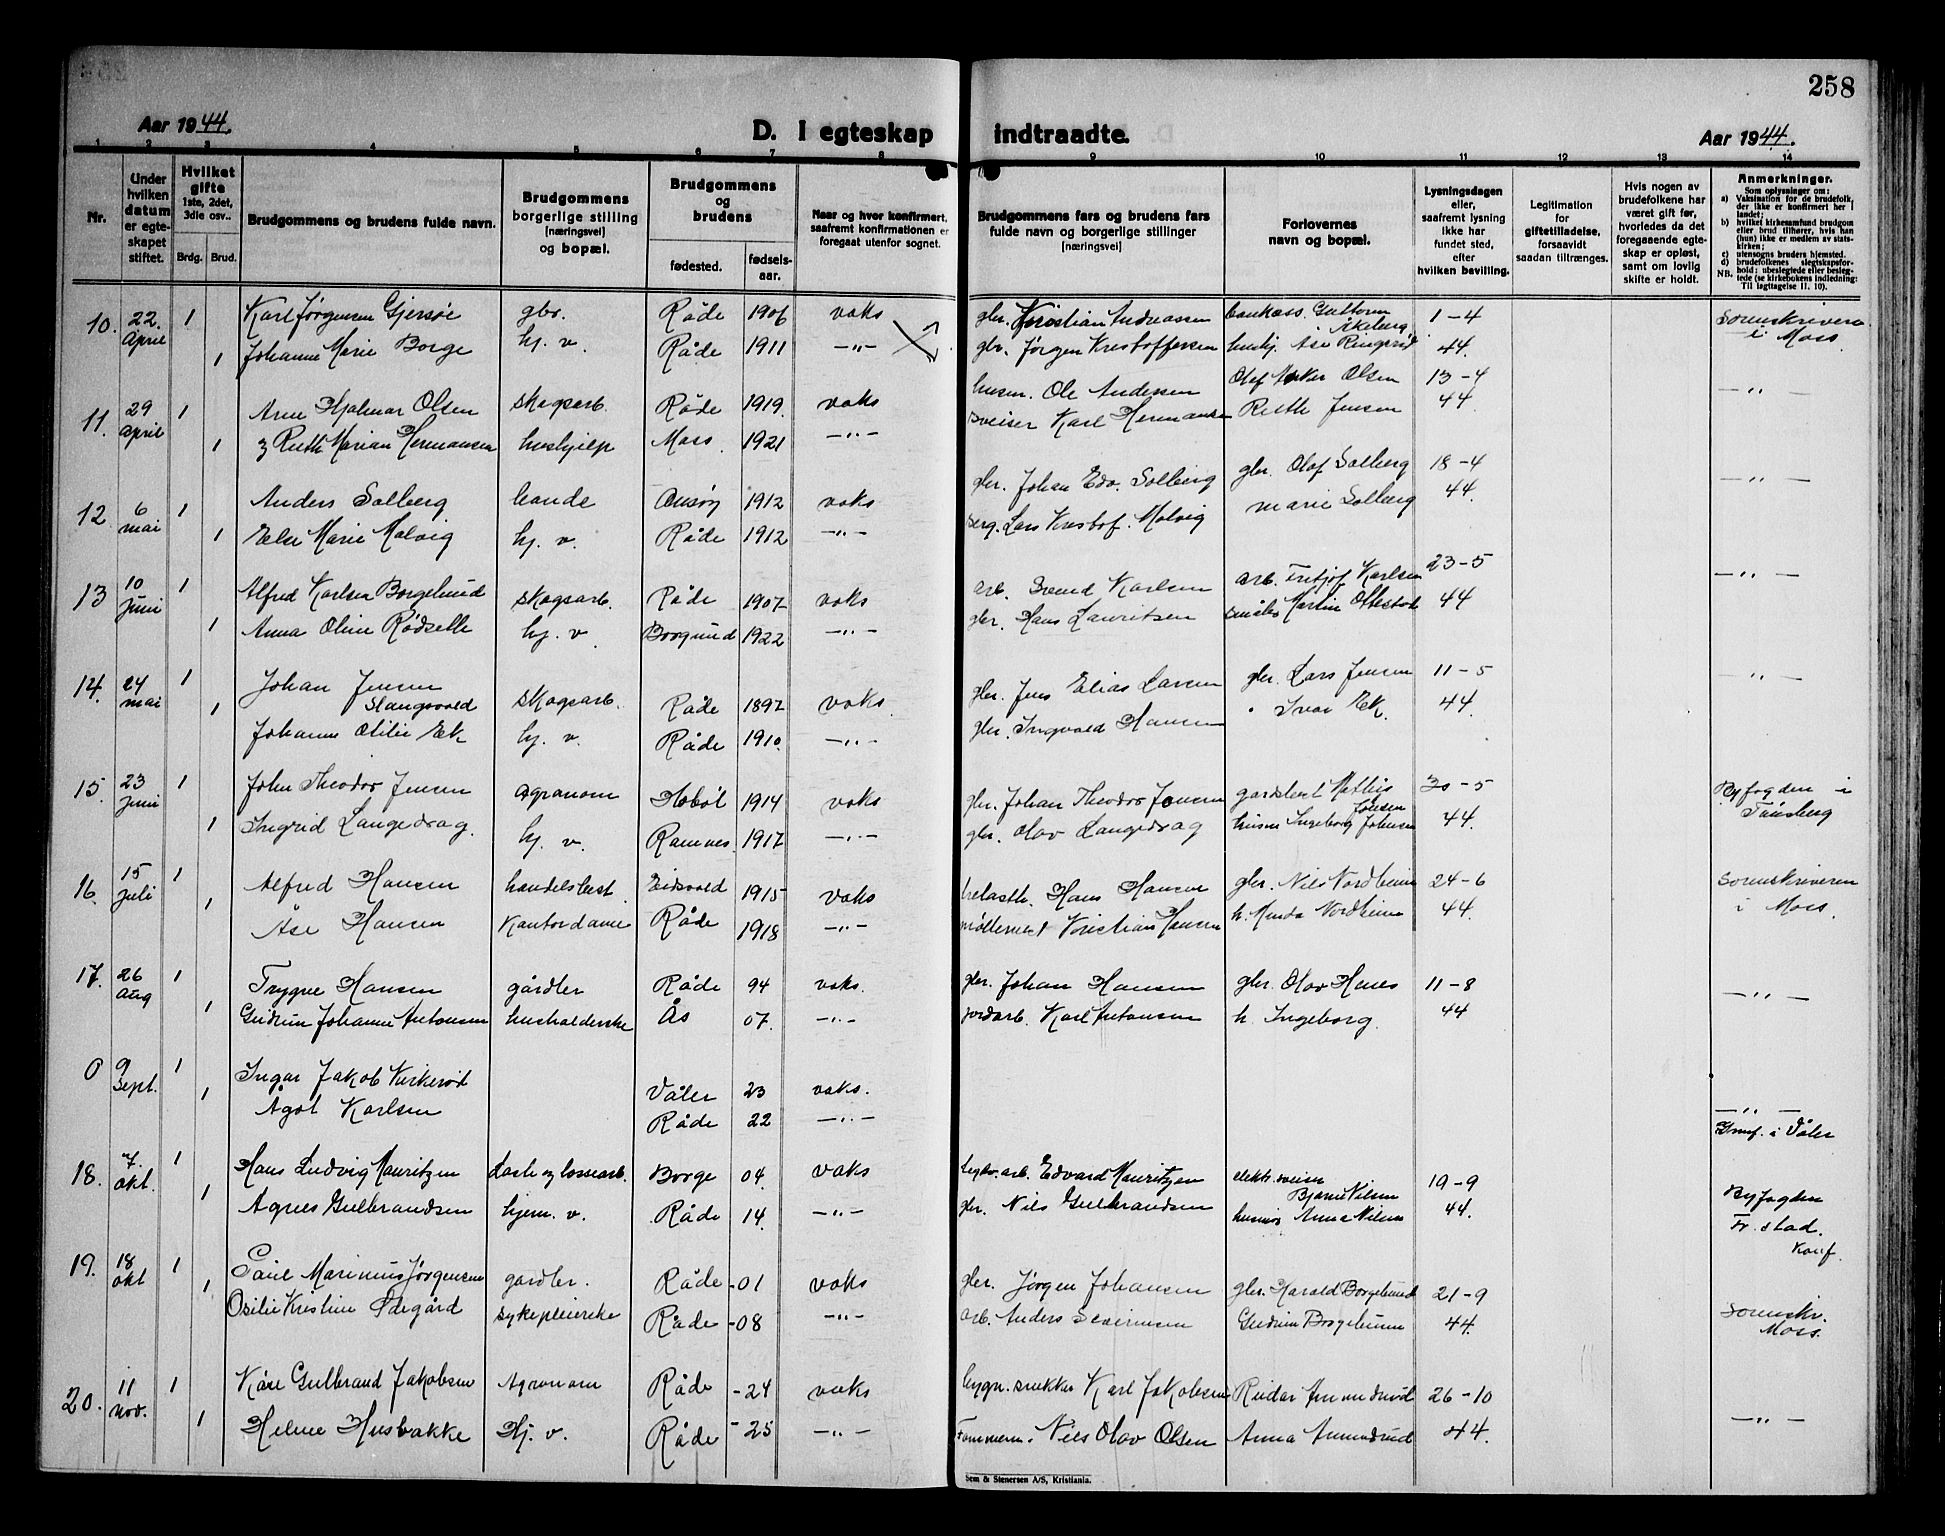 258
Aar 1944.
D. I egteskap indtraadte.
Aar 1944.
1 2 3 4 5 6 7 8 9 10 11 12 13 14
Nr.
Under hvilken datum er egteskapet stiftet.
Hvilket gifte 1ste, 2det, 3die osv..
Brdg. Brud.
Brudgommens og brudens fulde navn.
Brudgommens borgerlige stilling (næringsvei) og bopæl.
Brudgommens og brudens
fødested.
fødsels-aar.
Naar og hvor konfirmert, saafremt konfirmationen er foregaat utenfor sognet.
Brudgommens fars og brudens fars fulde navn og borgerlige stillinger (næringsvei)
Forlovernes navn og bopæl.
Lysningsdagen eller, saafremt lysning ikke har fundet sted, efter hvilken bevilling.
Legitimation for giftetilladelse, forsaavidt saadan tiltrænges.
Hvis nogen av brudefolkene har været gift før, hvorledes da det foregaaende egteskap er opløst, samt om lovlig skifte er holdt.
Anmerkninger.
Som oplysninger om:
a) Vaksination for de brudefolk, der ikke er konfirmert her i landet;
b) hvilket kirkesamfund brudgom eller brud tilhører, hvis han (hun) ikke er medlem av statskirken;
c) utensogns bruders hjemsted.
d) brudefolkenes slegtskapsforhold: ubeslegtede eller beslegtede (se kirkebokens indledning:
NB. Til iagttagelse II. 10).
10. 22. April 1 Karl Jørgensen Gjersøe gbr. Råde 1906 voks gbr. Kristian Andreassen 1-4 Sorenskriveren i Moss
1 Johanne Marie Borge hj. v. Råde 1911 -"- gbr. Jørgen Kristoffersen 44.
11. 29 April 1 Arne Hjalmar Olsen skogsarb. Råde 1919. voks husm. Ole Andersen Olaf Olsen 13-4 -"-
1 Ruth Marian Hermansen hushjelp Moss 1921 -"- sveiser Karl Hermansen Ruth Jensen 44
12. 6 mai 1 Anders Solberg Onsøy 1912 voks gbr. Johan Edv. Solberg gbr. Olaf Solberg 18-4 -"-
1 Else Marie Molvig hj. v. Råde 1912 -"- Lars Kristof. Molvig Marie Solberg 44.
13 10 Juni 1 Alfred Karlsen Borgelund skogsarb. Råde 1907 voks arb. Svend Karlsen arb. Fritjof Karlsen 23-5 -"-
1 Anna Oline Rødselle hj. v. Borgund 1922 -"- gbr. Hans Lauritsen Martin Ottestad 44
14. 24 mai 1 Johan Jensen Slangsvold skogsarb. Råde 1897 voks gbr. Jens Elias Larsen gbr. Lars Jensen 11-5 -"-
1 Johanne Otilie Ek hj. v. Råde 1910. -"- gbr. Ingvald Hansen " Ivar Ek. 44.
15. 23 Juni 1 John Theodor Jensen agronom Hobøl 1914 voks gbr. Johan Theodor Jensen 30-5 Byfogden i Tønsberg
1 Ingrid Langedrag. hj. v. Ramnes. 1917 -"- gbr. Olav Langedrag Ingeborg Johnsen 44.
16. 15 Juli 1 Alfred Hansen handelsbest. Eidsvold 1915 voks Hans Hansen gbr. Nils Nordheim 24-6 Sorenskriveren i Moss.
1 Åse Hansen Kontordame Råde 1918 -"- Kristian Hansen h. Nordheim 44.
17. 26 aug 1 Trygve Hansen gårdbr Råde 94 voks. gbr. Johan Hansen gbr. Olav Hanes 11-8 -"-
1 Gudrun Johanne Antonsen husholderske Ås 07. -"- jordarb. Karl Antonsen h. Ingeborg. 44
0 9 sept. 1 Ingar Jakob Kirkerød Våler 23 voks.
1 Ågot Karlsen Råde 22 -"- -"- i Våler
18. 7. okt. 1 Hans Ludvig Mauritzen Laste og lossearb. Borge 04. voks Edvard Mauritzen elektr. sveiser Bjarne Nilsen 19-9 Byfogden Fr. stad.
1 Agnes Gulbrandsen hjem. v. Råde 14. -"- gbr. Nils Gulbrandsen husmor Anna Nilsen 44.
19. 18 okt 1 Paul Marinius Jørgensen gardbr. Råde -01 voks gbr. Jørgen Johansen gbr. Harald Borgelund 21-9 Sorenskr. Moss.
1 Osilie Kristine Ødegård sykepleierske Råde -08 -"- arb. Anders Severinsen Gudrun Borgelund 44.
20. 11 nov. 1 Kåre Gulbrand Jakobsen Agronom Råde -24 voks bygn. snekker Karl Jakobsen Reidar Amundrud 26-10 -"-
1 Helene Husbakke Hj. v. Råde -25 -"- Tømmerm. Nils Olav Olsen Anna Amundrud 44.
Sem & Stenersen A/S, Kristiania.